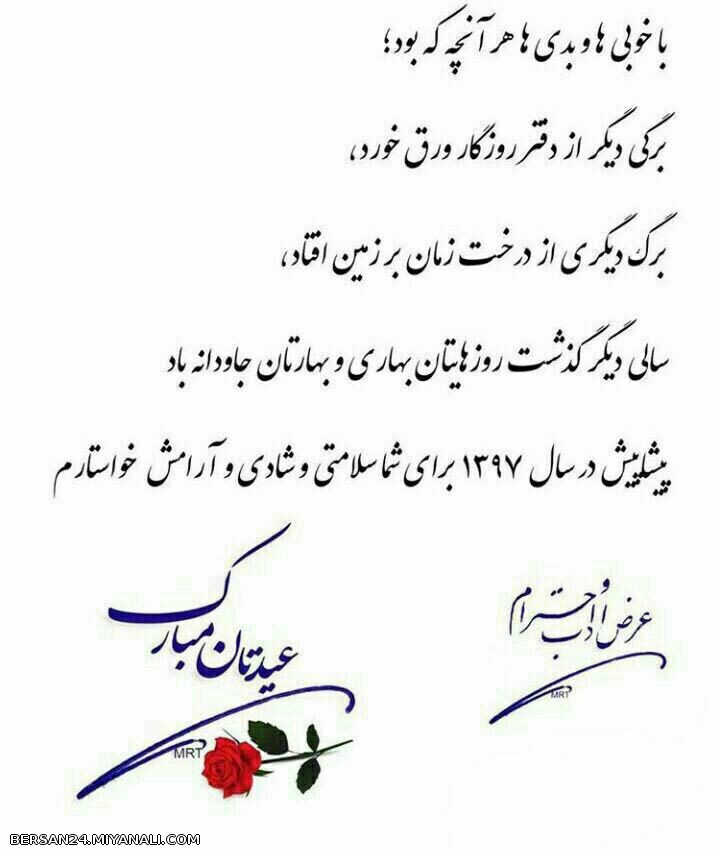 با خوبی ها و بدی ها هر آنچه که بود؛
برگی دیگر از دفتر روزگار ورق خورد،
برگ دیگری از درخت زمان بر زمین افتاد،
سالی دیگر گذشت روزهایتان بهاری و بهارتان جاودانه باد
پیشاپیش در سال ۱۳۹۷ برای شما سلامتی و شادی و آرامش خواستارم
عرض ادب و احترام
MRT
عیدتان مبارک
MRT
BERSAN24.MIYANALI.COM